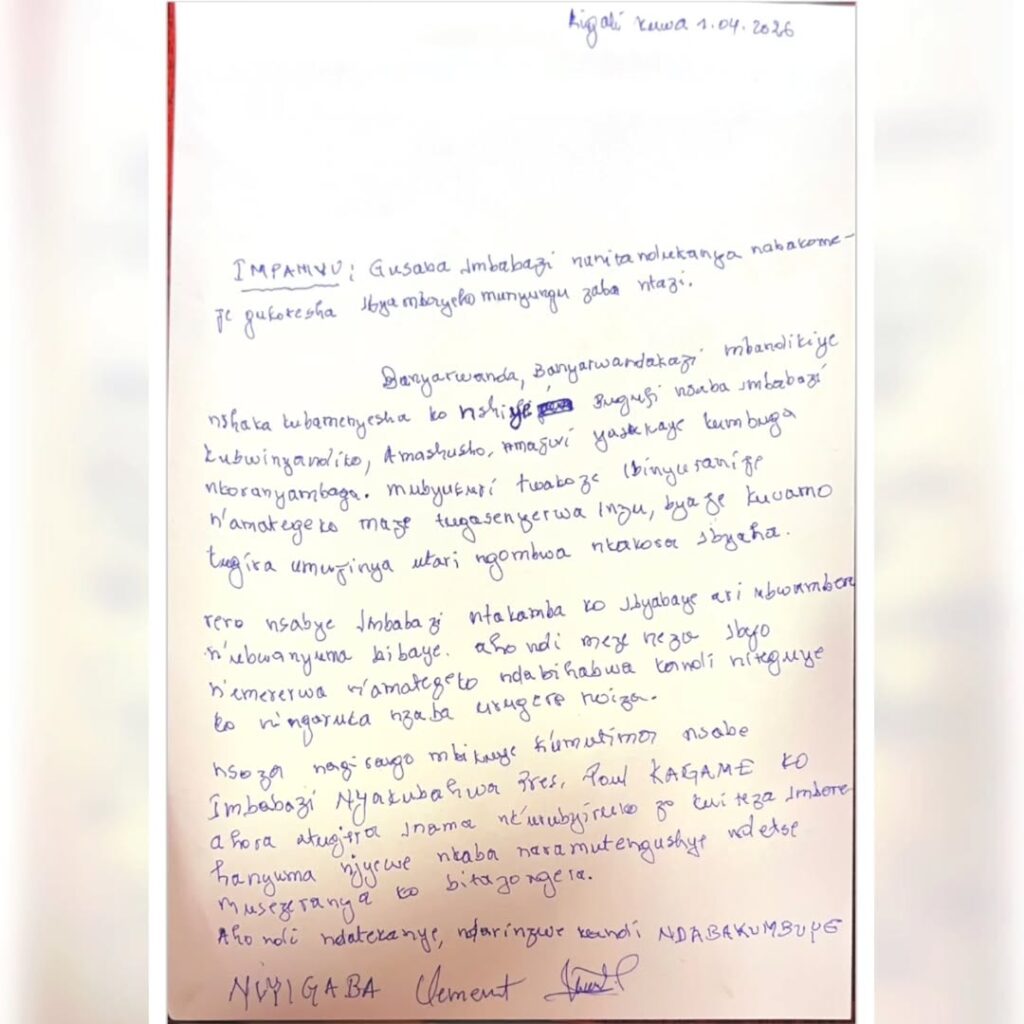 Kigali kuwa 1.04.2026
IMPAMVU: Gusaba Imbabazi nunitandukanya nabakome-
je gukoresha Ibyambayeho munyungu zaba ntazi.
Banyarwanda, Banyarwandakazi mbandikiye
nshaka kubamenyesha ko nshiye Bugufi nsaba imbabazi
kubwinyandiko, Amashusho, Amajwi yasakaye kumbuga
nkoranyambaga. mubyukuri twakoze Ibinyuranije
n'amategeko maze tugasenyerwa Inzu, byaje kuvamo
tugira umujinya utari ngombwa nkakora Ibyaha.
rero nsabye Imbabazi ntakamba ko Ibyabaye ari ubwambere
n'ubwanyuma bibaye. aho ndi meze neza Ibyo
n'emererwa n'amategeko ndabihabwa kandi niteguye
ko n'ingaruka nzaba urugero rwiza.
nsoza nagirango mbikuye k'umutima nsabe
Imbabazi Nyakubahwa Pres. Paul KAGAME ko
ahora atugira Inama nk'urubyiruko zo kwiteza Imbere
hanyuma njyewe nkaba naramutengushye ndetse
musezeranya ko bitazongera.
Aho ndi ndatekanye, ndarinzwe kandi NDABAKUMBUYE
NIYIGABA Clement